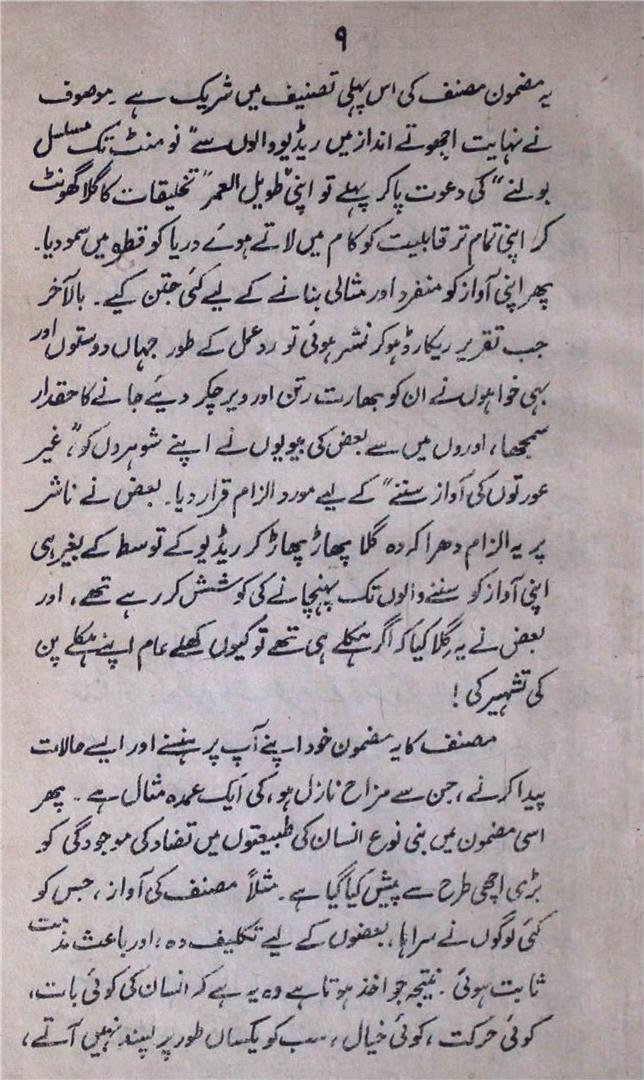 ۹
یہ مضمون مصنف کی اس پہلی تصنیف میں شریک ہے ۔ موصوف
نے نہایت اچھوتے انداز میں ریڈیو والوں سے "نو منٹ تک مسلسل
بولنے" کی دعوت پا کر پہلے تو اپنی "طویل العمر" تخلیقات کا گلا گھونٹ
کر اپنی تمام تر قابلیت کو کام میں لاتے ہوئے دریا کو قطرہ میں سمو دیا۔
پھر اپنی آواز کو منفرد اور مثالی بنانے کے لیے کئی جتن کیے۔ بالآخر
جب تقریر ریکارڈ ہو کر نشر ہوئی تو ردعمل کے طور جہاں دوستوں اور
بہی خواہوں نے ان کو بھارت رتن اور ویر چکر دیئے جانے کا حقدار
سمجھا، اوروں میں سے بعض کی بیویوں نے اپنے شوہروں کو "غیر
عورتوں کی آواز سننے" کے لیے مورد الزام قرار دیا۔ بعض نے ناشر
پر یہ الزام دھرا کہ وہ گلا پھاڑ پھاڑ کر ریڈیو کے توسط کے بغیر ہی
اپنی آواز کو سننے والوں تک پہنچانے کی کوشش کر رہے تھے، اور
بعض نے یہ گلا کیا کہ اگر ہکلے ہی تھے تو کیوں کھلے عام اپنے ہکلے پن
کی تشہیر کی !
مصنف کا یہ مضمون خود اپنے آپ پر ہنسنے اور ایسے حالات
پیدا کرنے ، جن سے مزاح نازل ہو، کی ایک عمدہ مثال ہے ۔ پھر
اسی مضمون میں بنی نوع انسان کی طبیعتوں میں تضاد کی موجودگی کو
بڑی اچھی طرح سے پیش کیا گیا ہے۔ مثلاً مصنف کی آواز ، جس کو
کئی لوگوں نے سراہا، بعضوں کے لیے تکلیف دہ ، اور باعث مذمت
ثابت ہوئی ۔ نتیجہ جو اخذ ہوتا ہے وہ یہ ہے کہ انسان کی کوئی بات،
کوئی حرکت ، کوئی خیال ، سب کو یکساں طور پر پسند نہیں آتے،